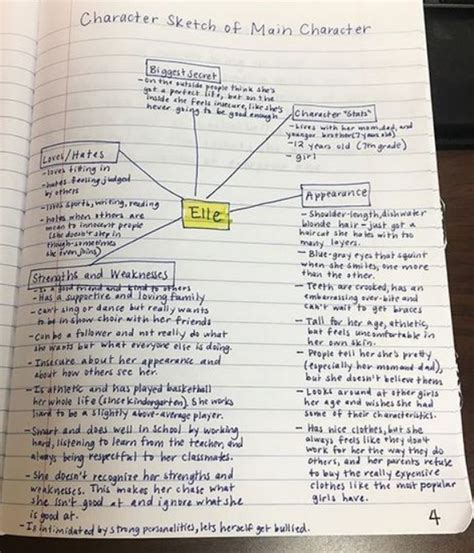 Character Sketch of Main Character
Biggest Secret
- on the outside people think she's
got a perfect life, but on the
inside she feels insecure, like she's
never going to be good enough
Character "Stats"
- Lives with her mom, dad, and
younger brother (7 years old)
- 12 years old (7th grade)
- girl
Loves/Hates
- loves fitting in
- hates feeling judged
by others
- loves sports, writing, reading
- hates when others are
mean to innocent people
(she doesn't step in
though - sometimes
she even joins)
Elle
Appearance
- Shoulder-length, dishwater
blonde hair - just got a
haircut she hates with too
many layers.
- Blue-gray eyes that squint
when she smiles, one more
than the other.
- Teeth are crooked, has an
embarrassing over-bite and
can't wait to get braces
- Tall for her age, athletic,
but feels uncomfortable in
her own skin.
- People tell her she's pretty
(especially her mom and dad),
but she doesn't believe them
- Looks around at other girls
her age and wishes she had
some of their characteristics.
- Has nice clothes, but she
always feels like they don't
work for her the way they do
others, and her parents refuse
to buy the really expensive
clothes like the most popular
girls have.
Strengths and Weaknesses
- Is a good friend and kind to others
- Has a supportive and loving family
- can't sing or dance but really wants
to be in show choir with her friends
- Can be a follower and not really do what
she wants but what everyone else is doing.
- Insecure about her appearance and
about how others see her.
- Is athletic and has played basketball
her whole life (since kindergarten). She works
hard to be a slightly above-average player.
- Smart and does well in school by working
hard, listening to learn from the teacher, and
always being respectful to her classmates.
- She doesn't recognize her strengths and
weaknesses. This makes her chase what
she isn't good at and ignore what she
is good at.
- Is intimidated by strong personalities, lets herself get bullied.
4